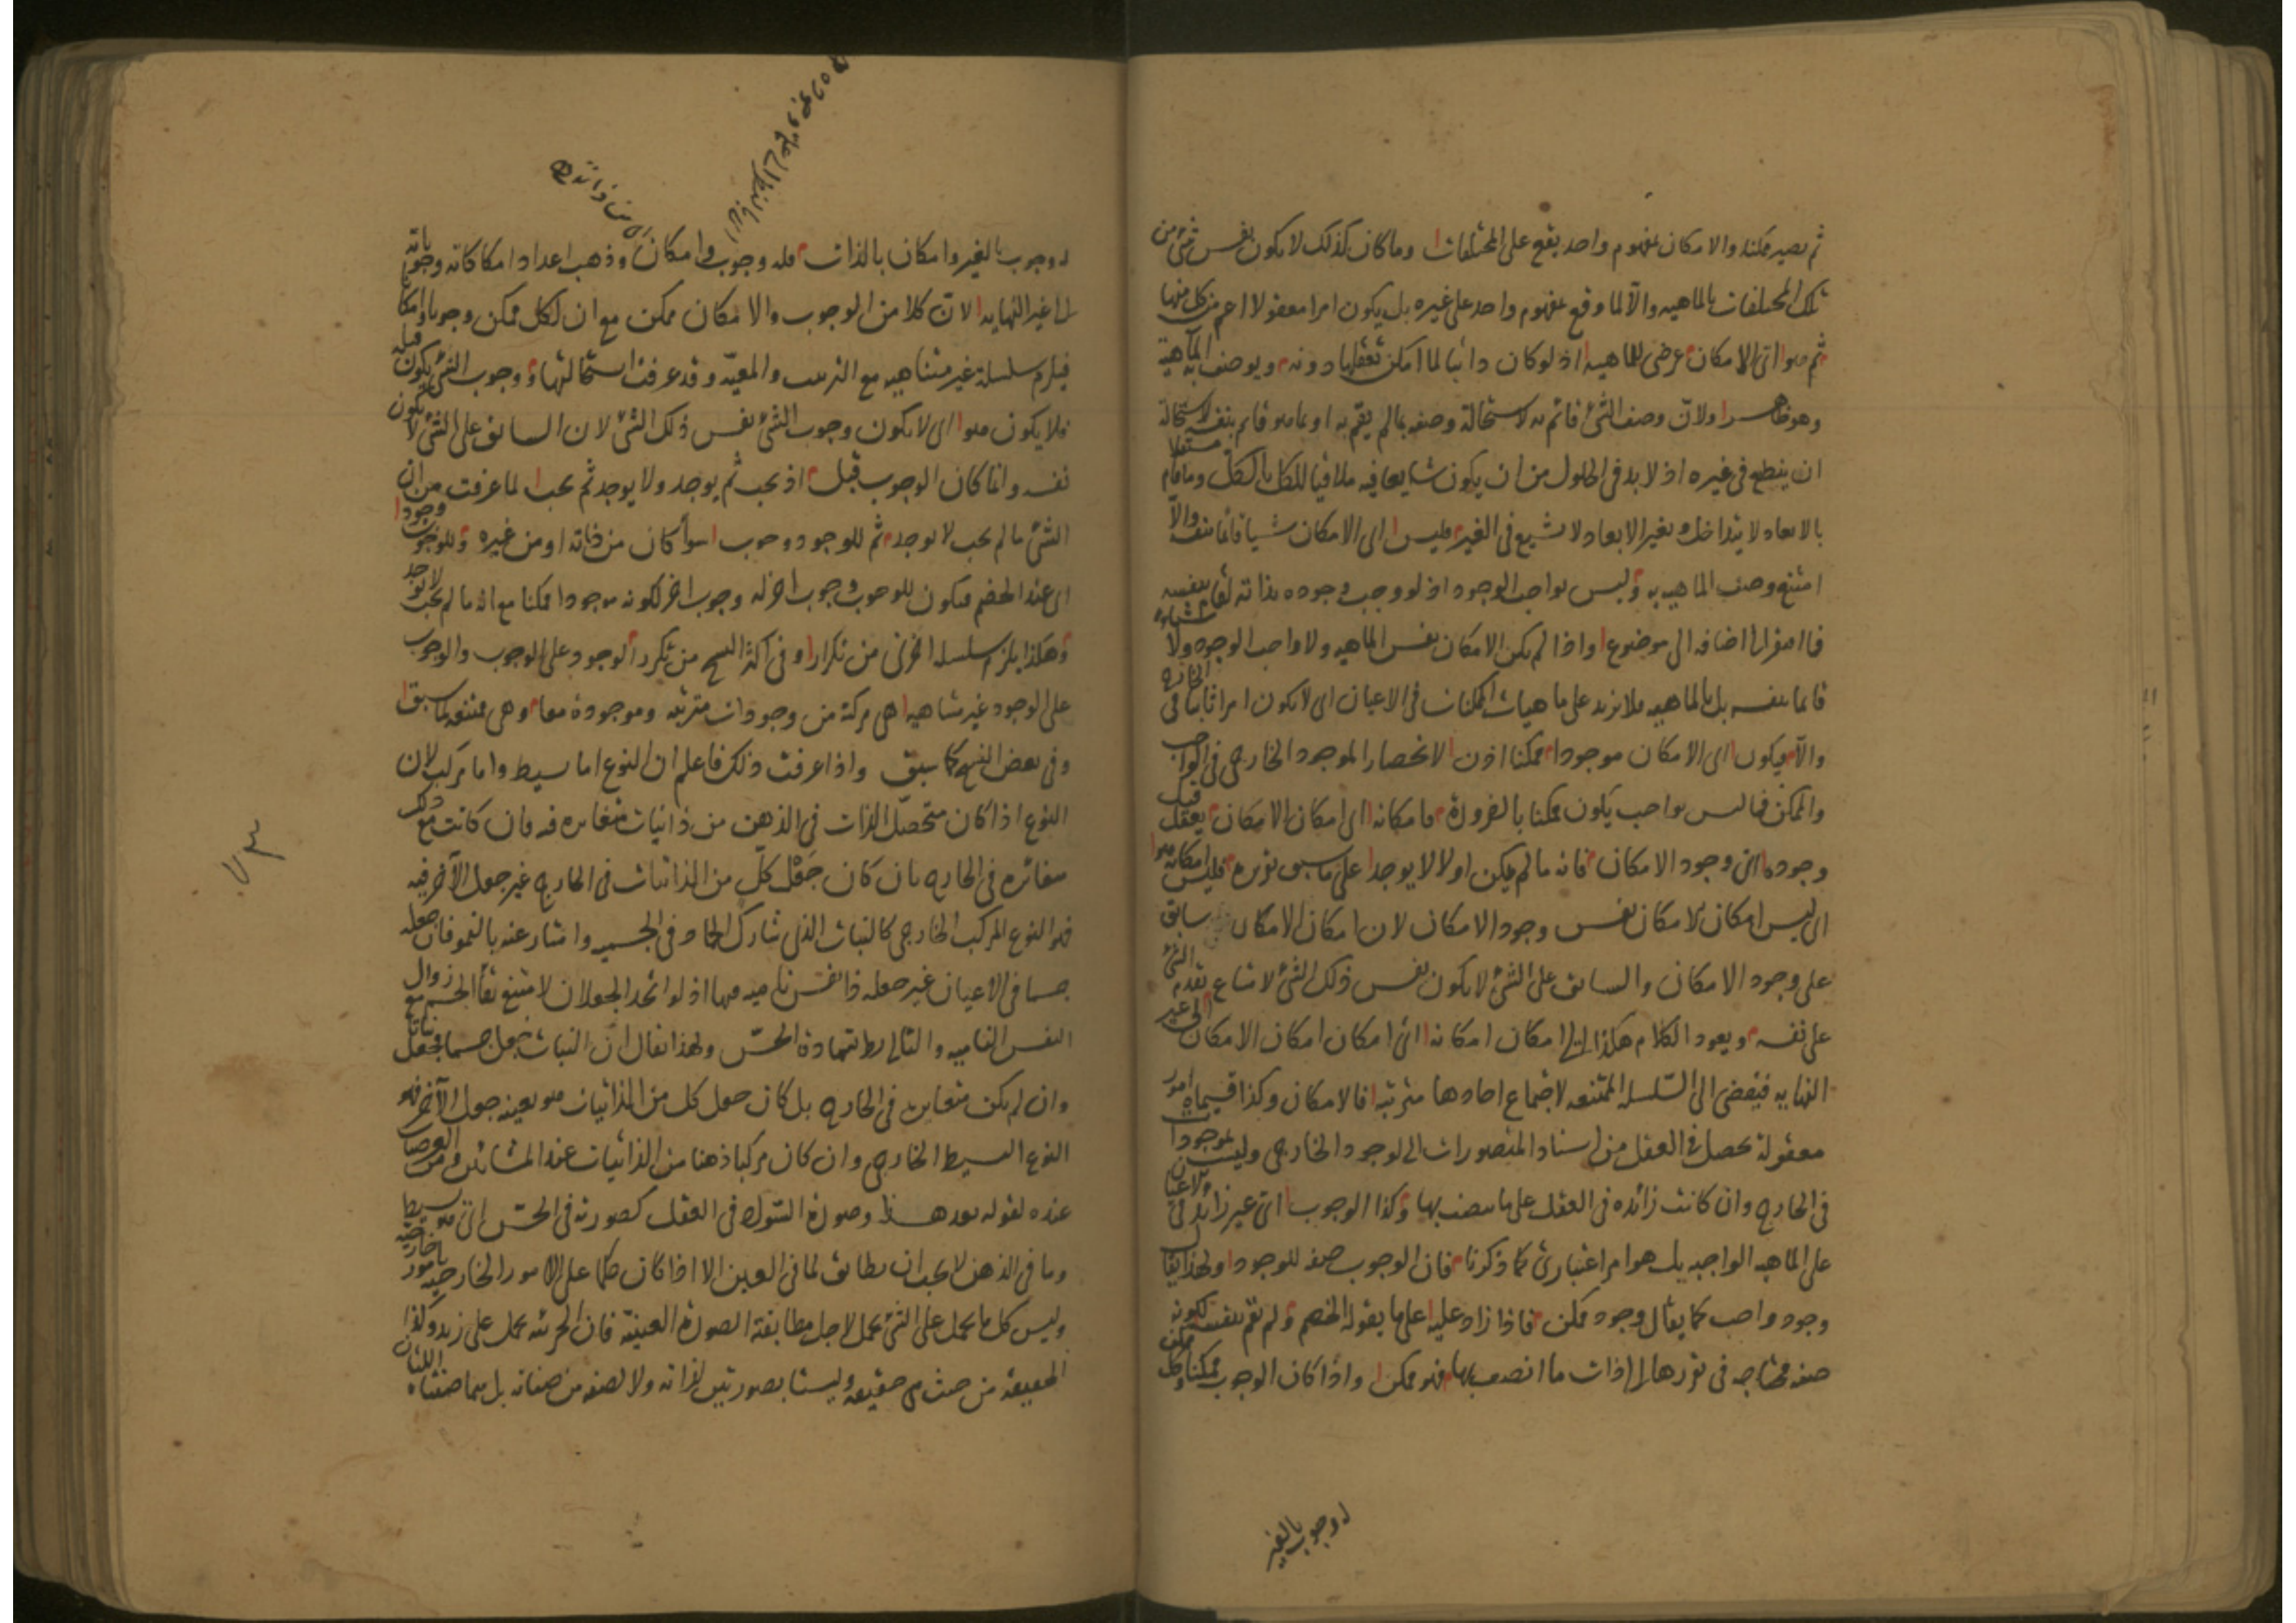 ثم يصير ممكنا والامكان بمفهوم واحد يقع على المختلفات وما كان كذلك لا يكون نفس شئ من
تلك المختلفات بالماهيه والا لما وقع بمفهوم واحد على غيره بل يكون امرا معقولا اعم من كل منها
ثم هو اى الامكان عرضى للماهيه اذ لو كان ذاتيا لما امكن تعقلها دونه ويوصف به الماهية
وهو ظاهر ولان وصف الشئ قائم به لاستحالة وصفه بما لم يقم به او بما هو قائم بنفسه لاستحالة
ان ينطبع فى غيره اذ لا بد فى الحلول من ان يكون شايعا فيه ملاقيا للكل بالكل وما قام مستقلا
بالابعاد لا يتداخل بغير الابعاد ولا تشيع فى الغير فليس اى الامكان شيا قائما بنفسه والا
امتنع وصف الماهيه به وليس بواجب الوجود اذ لو وجب وجوده بذاته لقام بنفسه
فما افتقر الى اضافه الى موضوع واذا لم يكن الامكان نفس الماهيه ولا واجب الوجود ولا شيا
قائما بنفسه بل بالماهيه فلا يزيد على ماهيات الممكنات فى الاعيان اى لا يكون امرا ثابتا فى الخارج
والا فيكون اى الامكان موجودا ممكنا اذن لانحصار الموجود الخارجى فى الواجب
والممكن فما ليس بواجب يكون ممكنا بالضرورة فامكانه اى امكان الامكان يعقل قبل
وجوده اى وجود الامكان فانه ما لم يمكن اولا لا يوجد على ما سبق تقريره فليس امكانه هو
اى ليس امكان الامكان نفس وجود الامكان لان امكان الامكان سابق
على وجود الامكان والسابق على الشئ لا يكون نفس ذلك الشئ لامتناع تقدم الشئ
على نفسه ويعود الكلام هكذا الى امكان امكانه اى امكان امكان الامكان الى غير
النهايه فيفضى الى السلسله الممتنعه لاجتماع احادها مترتبه فالامكان وكذا قسيماه امور
معقولة تحصل فى العقل من اسناد المتصورات الى الوجود الخارجى وليست بموجودات
فى الخارج وان كانت زائده فى العقل على ما يتصف بها وكذا الوجوب اى غير زائد فى الاعيان
على الماهيه الواجبه بل هو امر اعتبارى كما ذكرنا فان الوجوب صفه للوجود ولهذا يقال
وجود واجب كما يقال وجود ممكن فاذا زاد عليه على ما يقوله الخصم ولم يقم بنفسه لكونه
صفه محتاجه فى تقررها الى ذات ما اتصف بها فهو ممكن واذا كان الوجوب ممكنا وكل ممكن
له وجوب بالغير
له وجوب بالغير وامكان بالذات فله وجوب وامكان وذهب اعداد امكاناته ووجوباته
الى غير النهايه لان كلا من الوجوب والامكان ممكن مع ان لكل ممكن وجوبا وامكانا
فيلزم سلسلة غير متناهيه مع الترتيب والمعيه وقد عرفت استحالتها ووجوب الشئ يكون قبله
فلا يكون هو اى لا يكون وجوب الشئ نفس ذلك الشئ لان السابق على الشئ لا يكون
نفسه وانما كان الوجوب قبل اذ يجب ثم يوجد ولا يوجد ثم يجب لما عرفت من ان
الشئ ما لم يجب لا يوجد ثم للوجود وجوب سوأ كان من ذاته او من غيره وللوجوب وجود
اى عند الخصم فيكون للوجوب وجوب اخر له وجوب اخر لكونه موجودا ممكنا مع انه ما لم يجب لا يوجد
وهكذا يلزم سلسله اخرى من تكرار وفى اكثر النسخ من تكرر الوجود على الوجوب والوجوب
على الوجود غير متناهيه اى هى مركبة من وجودات مترتبه وموجودة معا وهى ممتنعه لما سبق
وفى بعض النسخ كما سبق واذا عرفت ذلك فاعلم ان النوع اما بسيط واما مركب لان
النوع اذا كان متحصل الذات فى الذهن من ذاتيات متغايره فيه فان كانت مع ذلك
متغايره فى الخارج بان كان جعل كل من الذاتيات فى الخارج غير جعل الآخر فيه
فهو النوع المركب الخارجى كالنبات الذى شارك الجماد فى الجسميه وامتاز عنه بالنمو فان جعله
جسما فى الاعيان غير جعله ذا نفس ناميه فيها اذ لو اتحد الجعلان لامتنع بقأ الجسم مع زوال
النفس الناميه والتالى باطل بشهادة الحس ولهذا يقال ان النبات جعل جسما فجعل نباتا
وان لم يكن متغايره فى الخارج بل كان جعل كل من الذاتيات هو بعينه جعل الآخر فهو
النوع البسيط الخارجى وان كان مركبا ذهنا من الذاتيات عند المشائين ومن العرضيات
عنده لقوله بعد هذا وصورة السواد فى العقل كصورته فى الحس اى هو بسيط
وما فى الذهن لا يجب ان يطابق لما فى العين الا اذا كان حكما على الامور الخارجيه بامور خارجيه
وليس كل ما يحمل على الشئ يحمل لاجل مطابقة الصورة العينيه فان الجزئيه تحمل على زيد وكذا
الحقيقه من حيث هى حقيقه وليستا بصورتين لذاته ولا لصفه من صفاته بل هما صفتاه اللتان